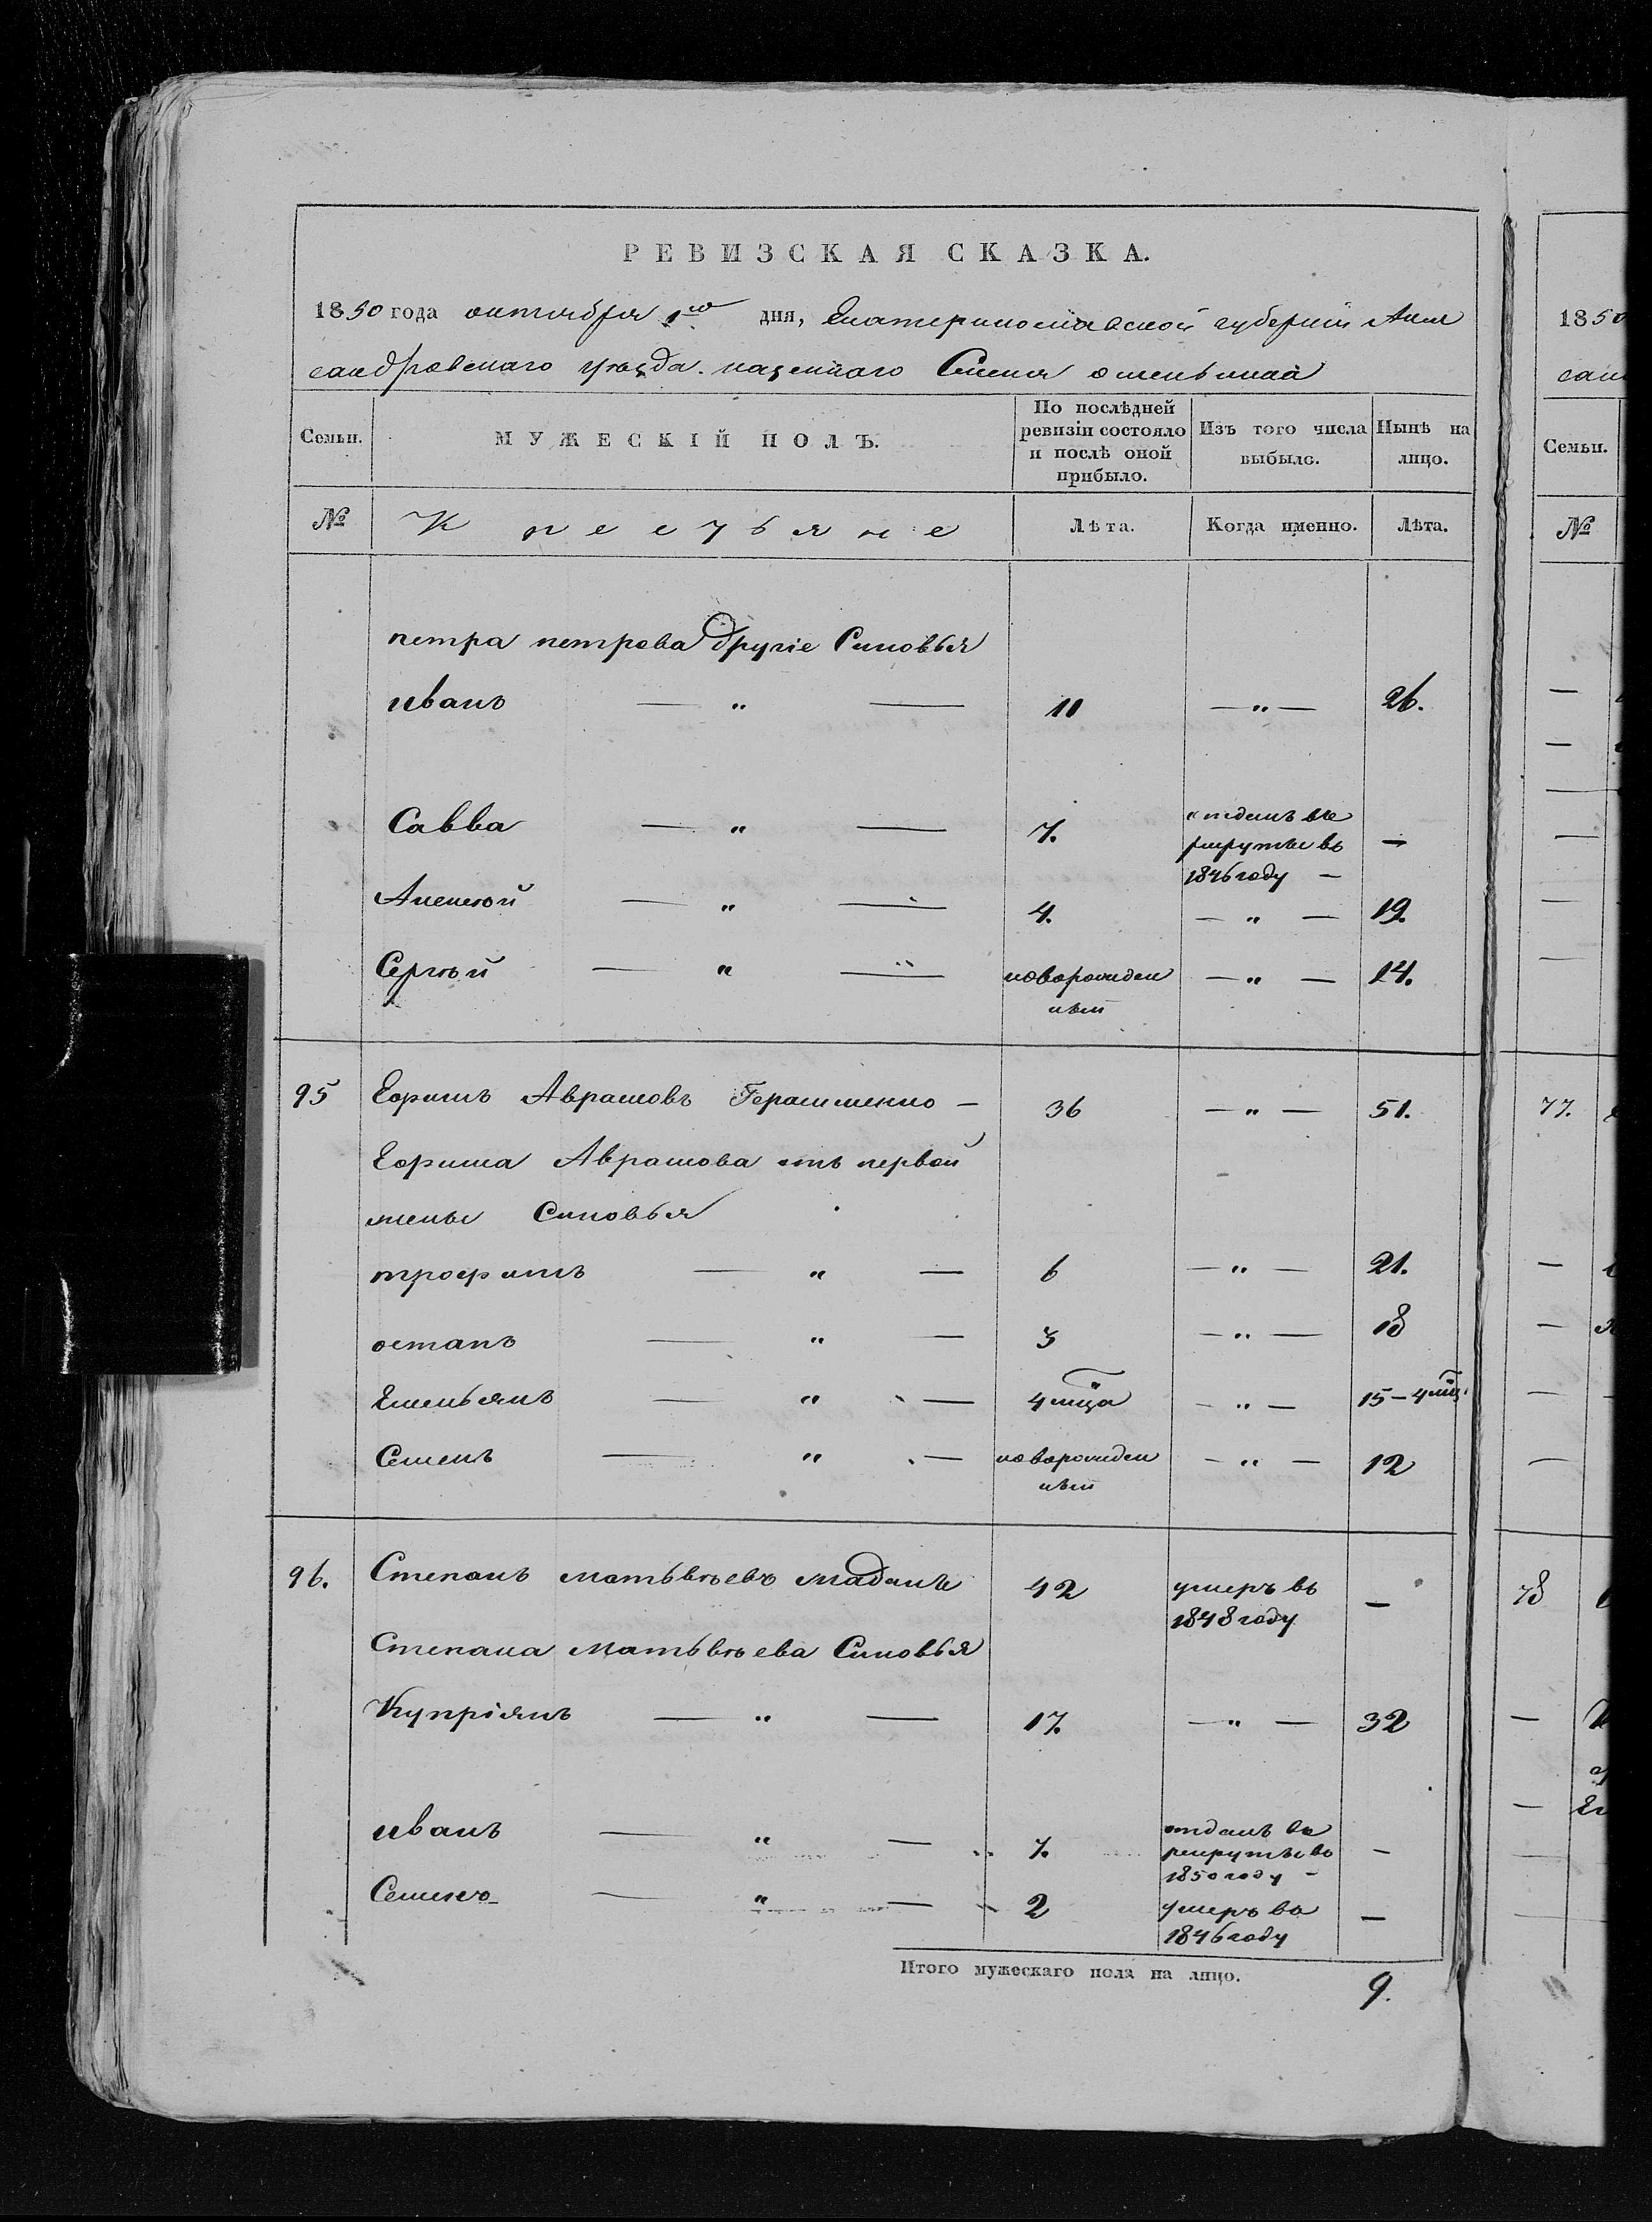 РЕВИЗСКАЯ СКАЗКА.
1850 года октября 1го дня, Екатеринославской губернии Алек
сандровскаго уѣзда. казеннаго Сѣленія
Семьи. МУЖЕСКІЙ ПОЛЪ. По послѣдней ревизіи состояло и послѣ оной прибыло. Изъ того числа выбыло. Нынѣ на лицо.
№ Крестьяне Лѣта. Когда именно. Лѣта.
петра петрова другіе Синовья
иванъ — " — 11 — " — 26.
Савва — " — 7. отданъ въ рекруты въ 1846 году — —
Алексѣй — " — 4. — " — 19.
Сергѣй — " — новорожден ный — " — 14.
95 Ефимъ Аврамовъ Герасименко — 36 — " — 51.
Ефима Аврамова отъ первой
жены Синовья
трофимъ — " — 6 — " — 21.
остапъ — " — 3 — " — 18
Емельянъ — " — 4 мца — " — 15 – 4 мц.
Семенъ — " — новорожден ный — " — 12
96. Степанъ матьвѣевъ Маданъ 42 умеръ въ 1848 году —
Степана матьвѣева Синовья
Купріянъ — " — 17. — " — 32
иванъ — " — 7. отданъ въ рекруты въ 1850 году — —
Семенъ — " — 2 умеръ въ 1846 году —
Итого мужескаго пола на лицо. 9.
1850
Семьи.
№
77.
78